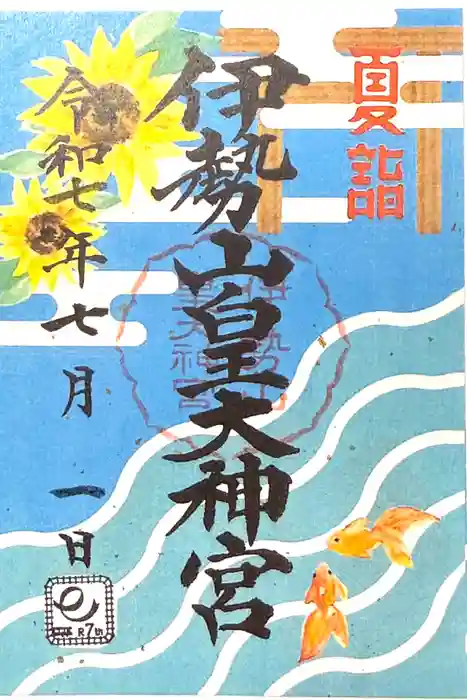 夏詣
伊勢山皇大神宮
伊勢山
皇大神宮
令和七年七月一日
R7th